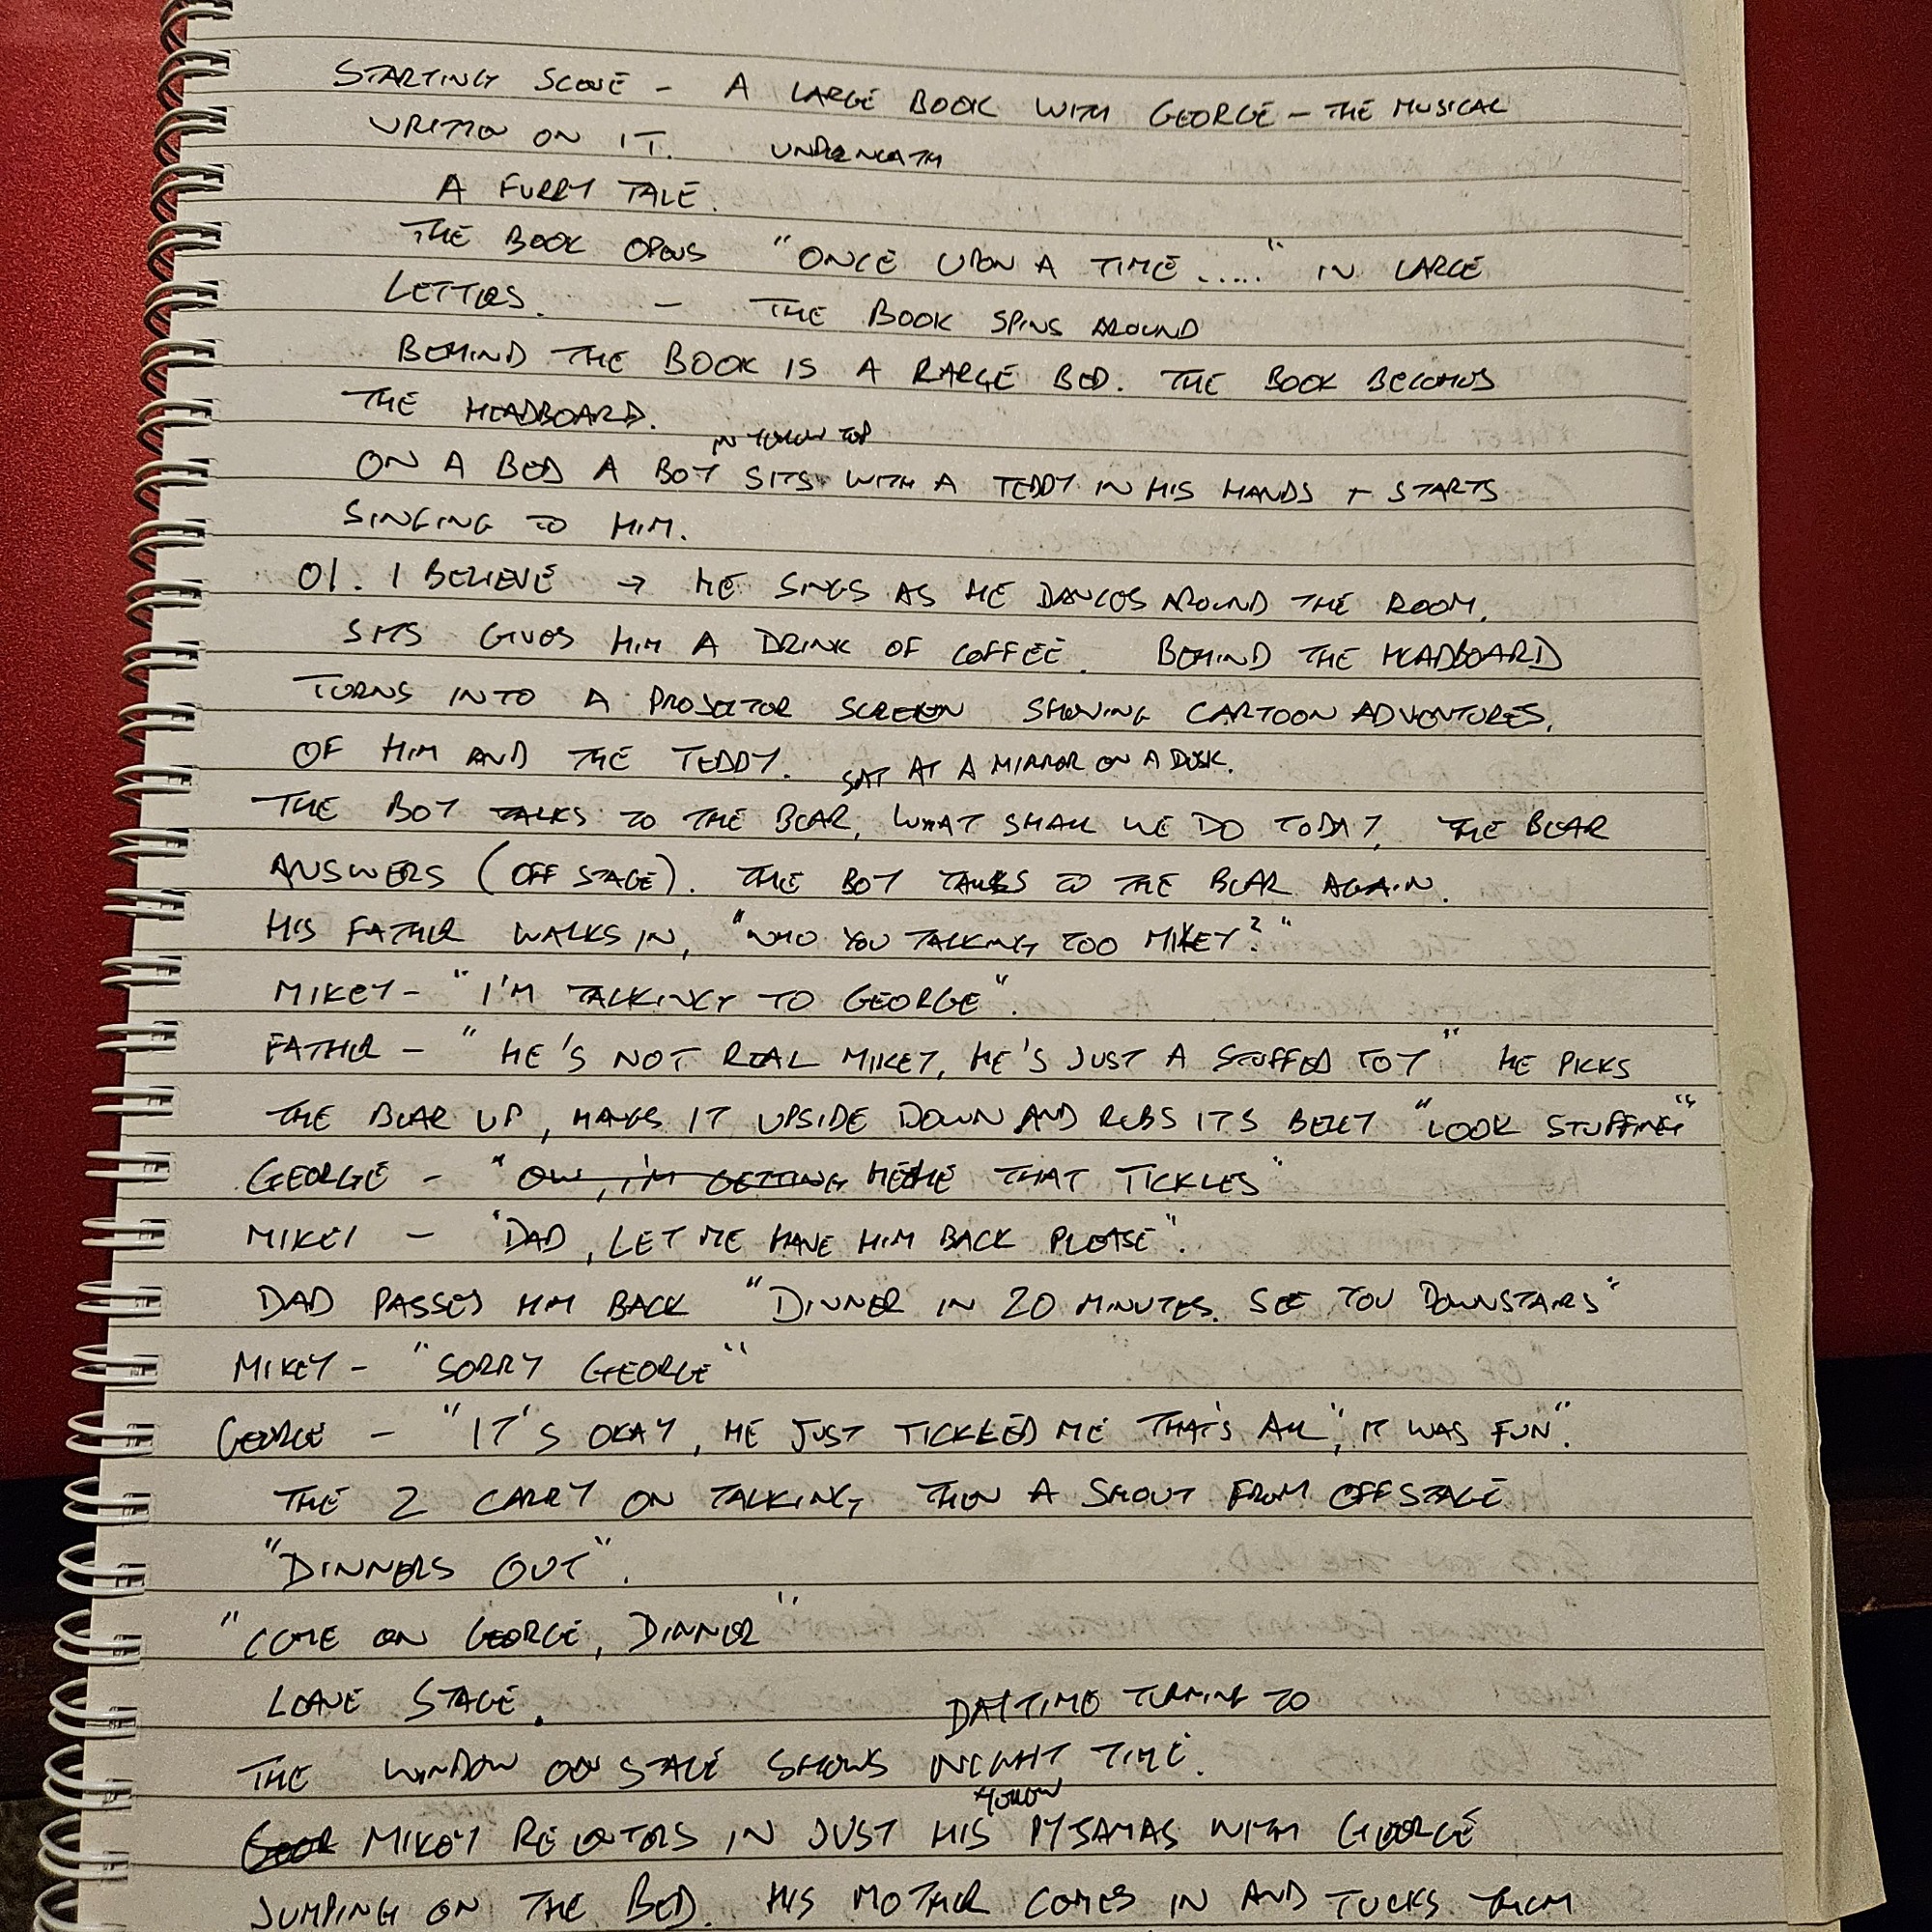 STARTING SCENE - A LARGE BOOK WITH GEORGE - THE MUSICAL
WRITTEN ON IT. UNDERNEATH
A FURRY TALE.
THE BOOK OPENS "ONCE UPON A TIME....." IN LARGE
LETTERS. - THE BOOK SPINS AROUND
BEHIND THE BOOK IS A RARGE BED. THE BOOK BECOMES
THE HEADBOARD.
IN YELLOW TOP
ON A BED A BOY SITS WITH A TEDDY IN HIS HANDS + STARTS
SINGING TO HIM.
01. I BELIEVE → HE SINGS AS HE DANCES AROUND THE ROOM.
SITS GIVES HIM A DRINK OF COFFEE. BEHIND THE HEADBOARD
TURNS INTO A PROJECTOR SCREEN SHOWING CARTOON ADVENTURES.
OF HIM AND THE TEDDY. SAT AT A MIRROR ON A DESK.
THE BOY TALKS TO THE BEAR, WHAT SHALL WE DO TODAY, THE BEAR
ANSWERS (OFF STAGE). THE BOY TALKS TO THE BEAR AGAIN.
HIS FATHER WALKS IN, "WHO YOU TALKING TOO MIKEY?"
MIKEY - "I'M TALKING TO GEORGE".
FATHER - "HE'S NOT REAL MIKEY, HE'S JUST A STUFFED TOY" HE PICKS
THE BEAR UP, HANGS IT UPSIDE DOWN AND RUBS ITS BELLY "LOOK STUFFING"
GEORGE - "OW, I'M GETTING HEHE THAT TICKLES"
MIKEY - "DAD, LET ME HAVE HIM BACK PLEASE".
DAD PASSES HIM BACK "DINNER IN 20 MINUTES. SEE YOU DOWNSTAIRS"
MIKEY - "SORRY GEORGE"
GEORGE - "IT'S OKAY, HE JUST TICKLED ME THAT'S ALL", IT WAS FUN".
THE 2 CARRY ON TALKING, THEN A SHOUT FROM OFFSTAGE
"DINNERS OUT".
"COME ON GEORGE, DINNER"
LEAVE STAGE.
DAYTIME TURNING TO
THE WINDOW ON STAGE SHOWS NIGHT TIME.
YELLOW
MIKEY REENTERS IN JUST HIS PYJAMAS WITH GEORGE,
JUMPING ON THE BED. HIS MOTHER COMES IN AND TUCKS THEM